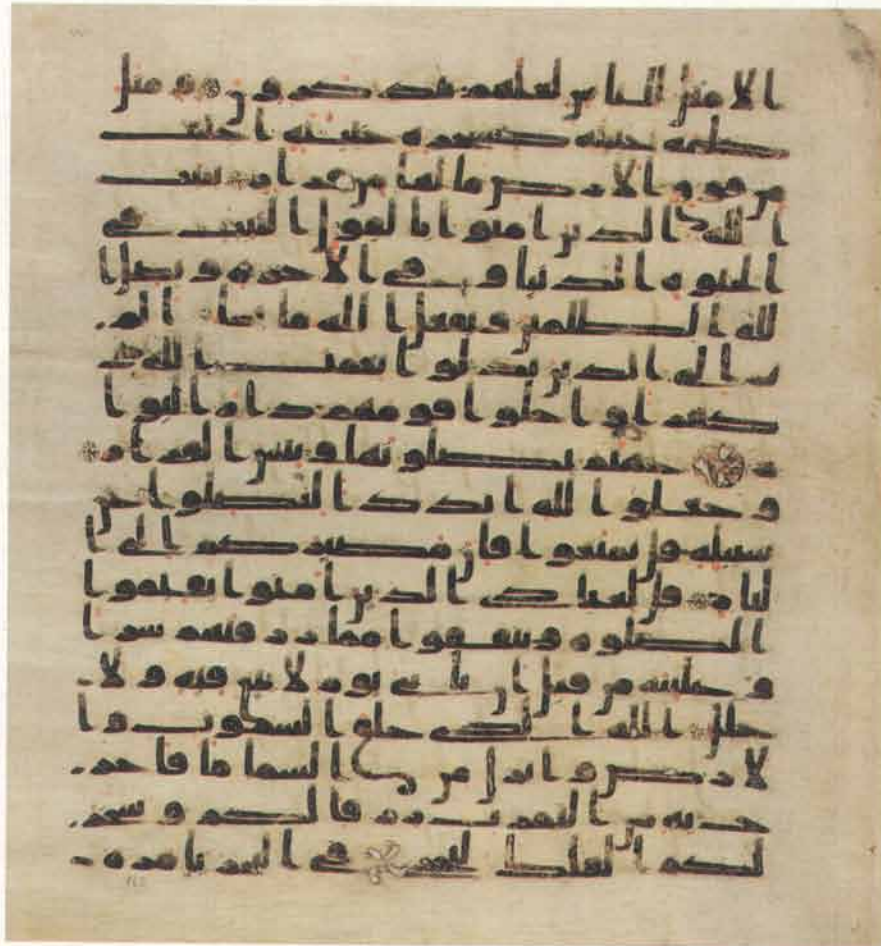 الامثل للناس لعلهم يتذكرون ومثل
كلمة خبيثة كشجرة خبيثة اجتثت
من فوق الارض ما لها من قرار يثبت
الله الذين امنوا بالقول الثابت في
الحيوة الدنيا وفي الاخرة ويضل ا
لله الظلمين ويفعل الله ما يشا الم
تر الى الذين بدلوا نعمت الله
كفرا واحلوا قومهم دار البوا
ر جهنم يصلونها وبئس القرار
وجعلوا لله اندادا ليضلوا عن
سبيله قل تمتعوا فان مصيركم الى ا
لنار قل لعبادي الذين امنوا يقيموا
الصلوة وينفقوا مما رزقنهم سرا
وعلنية من قبل ان ياتي يوم لا بيع فيه ولا
خلل الله الذي خلق السموت وا
لارض وانزل من السما ما فاخر
ج به من الثمرت رزقا لكم وسخر
لكم الفلك لتجري في البحر بامره و